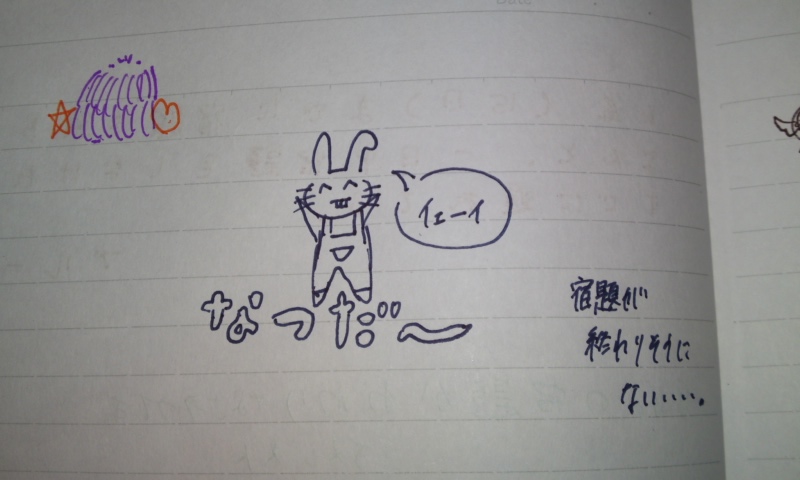 イェーイ
なつだ〜
宿題が
終わりそうに
ない……。